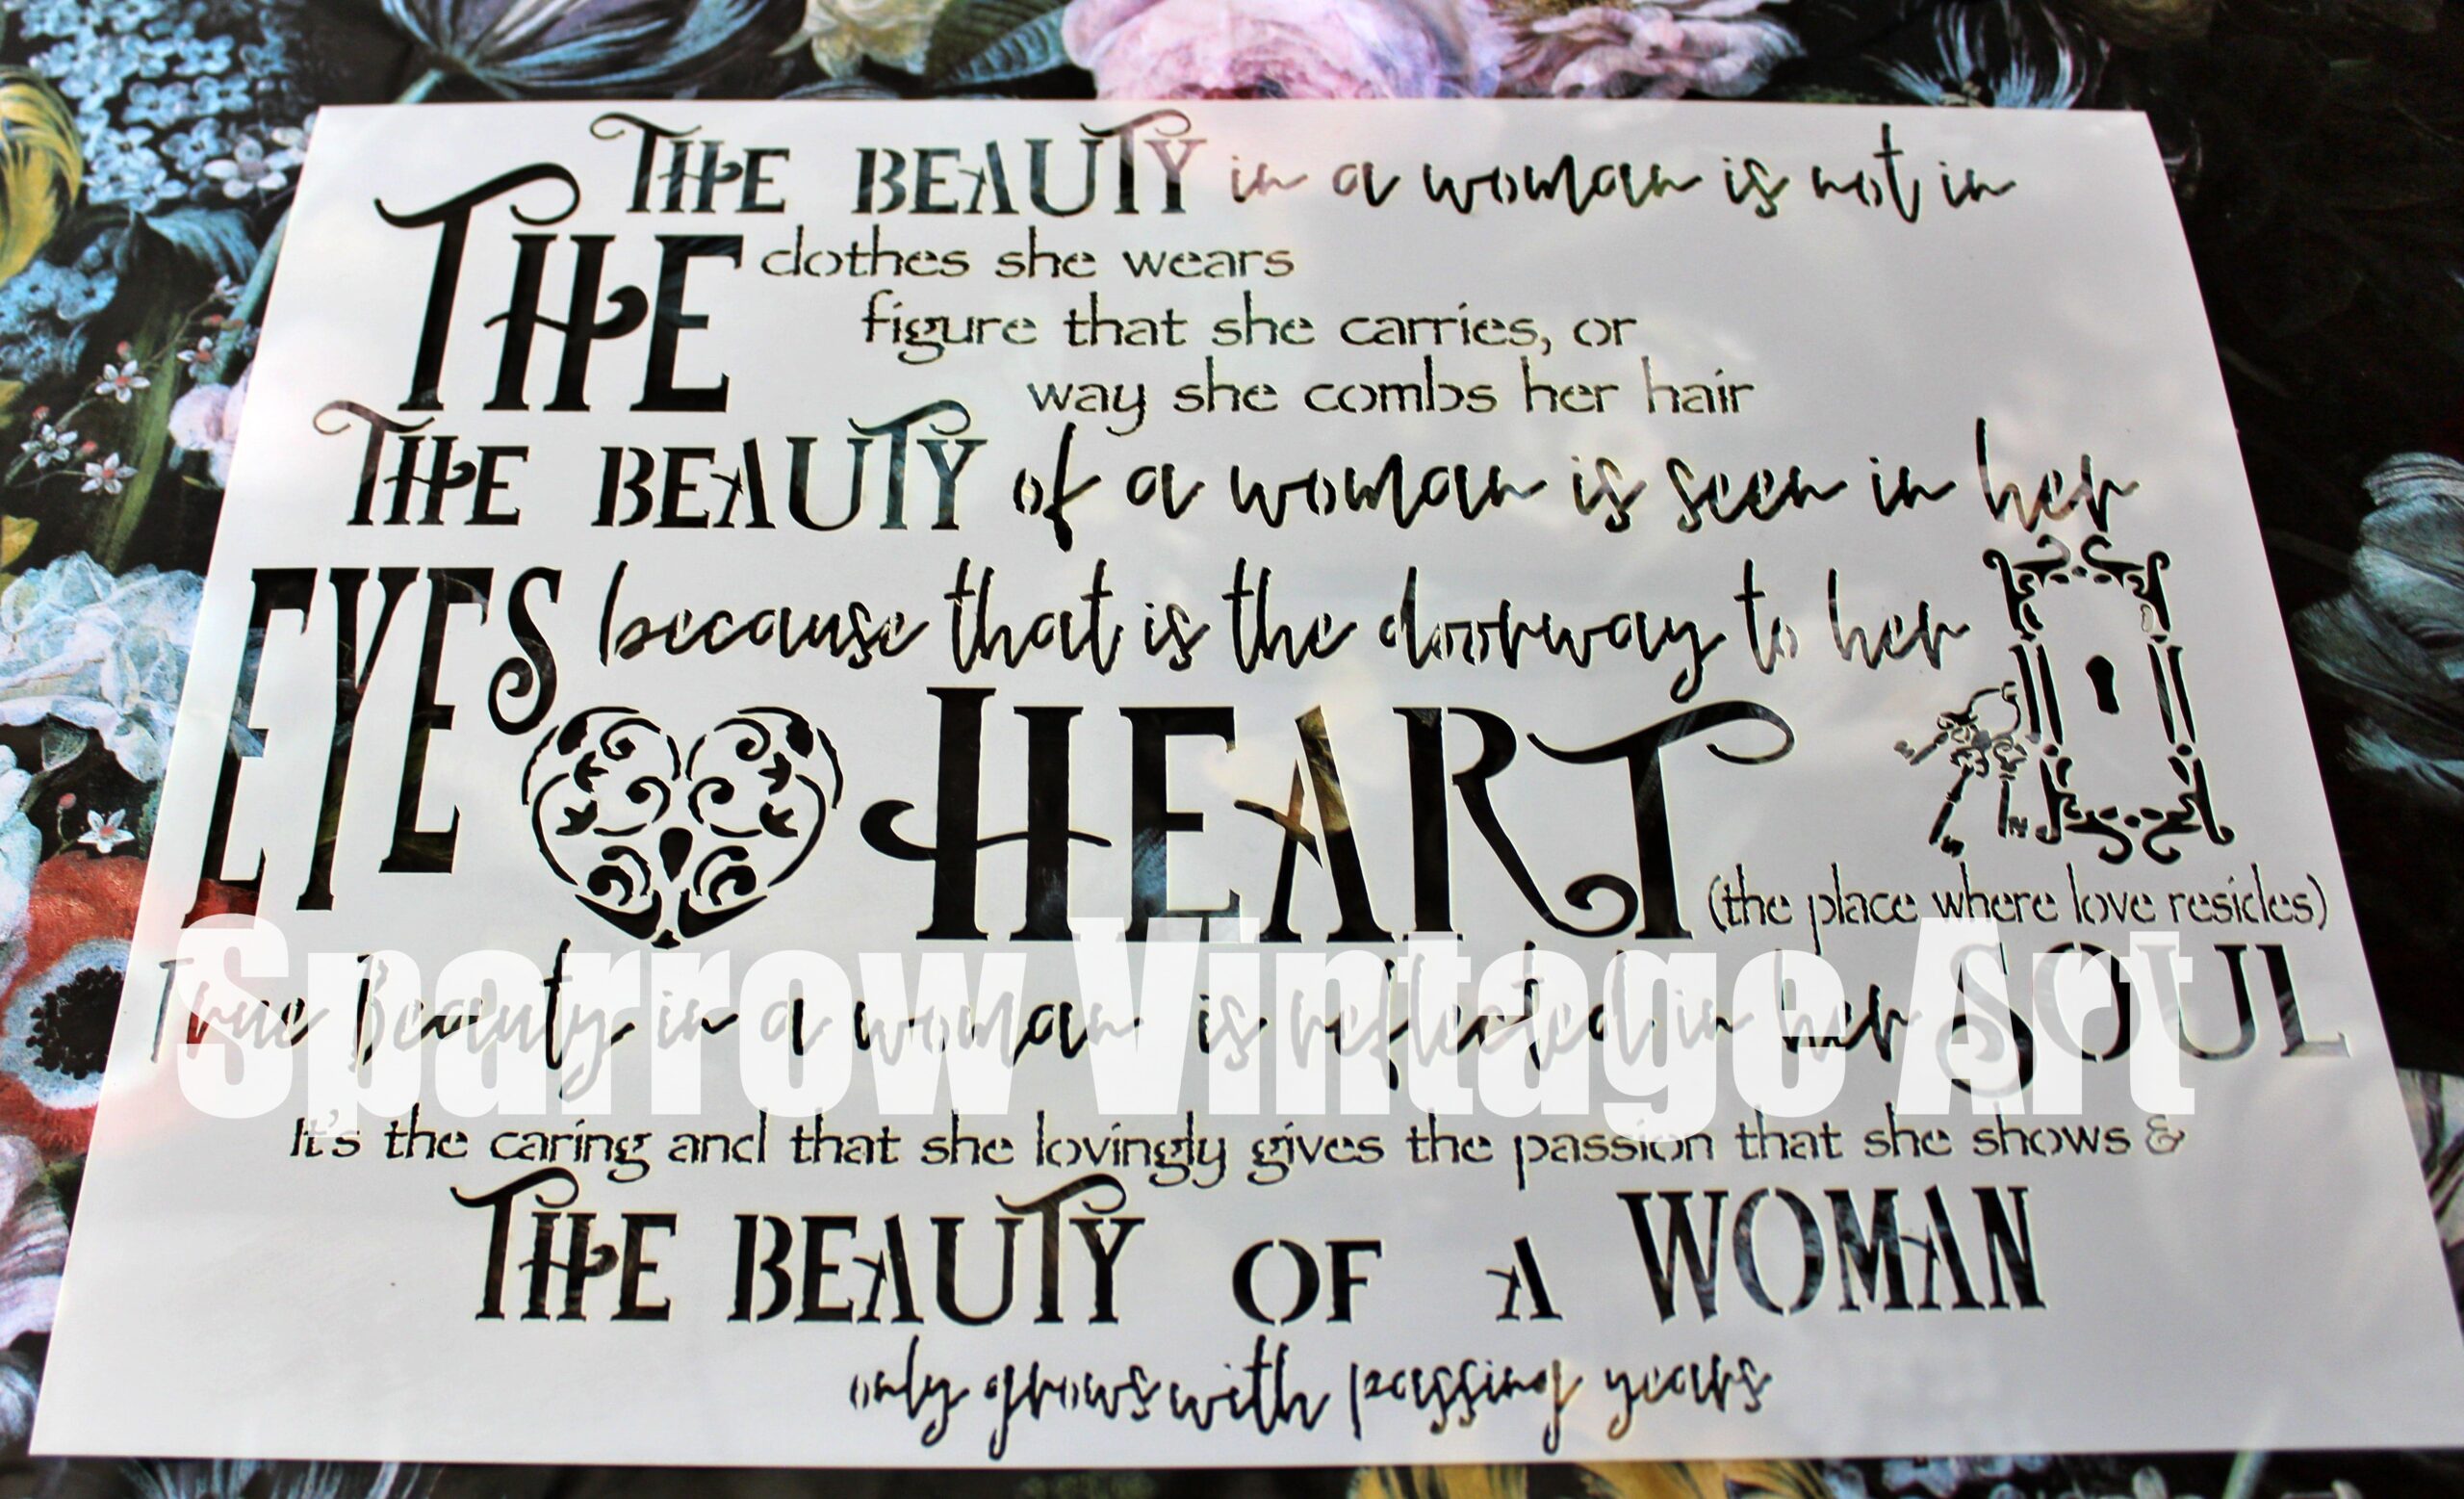 THE BEAUTY in a woman is not in
THE clothes she wears
figure that she carries, or
way she combs her hair
THE BEAUTY of a woman is seen in her
EYES because that is the doorway to her
HEART
(the place where love resides)
True Beauty in a woman is reflected in her SOUL
Sparrow Vintage Art
It's the caring and that she lovingly gives the passion that she shows &
THE BEAUTY OF A WOMAN
only grows with passing years